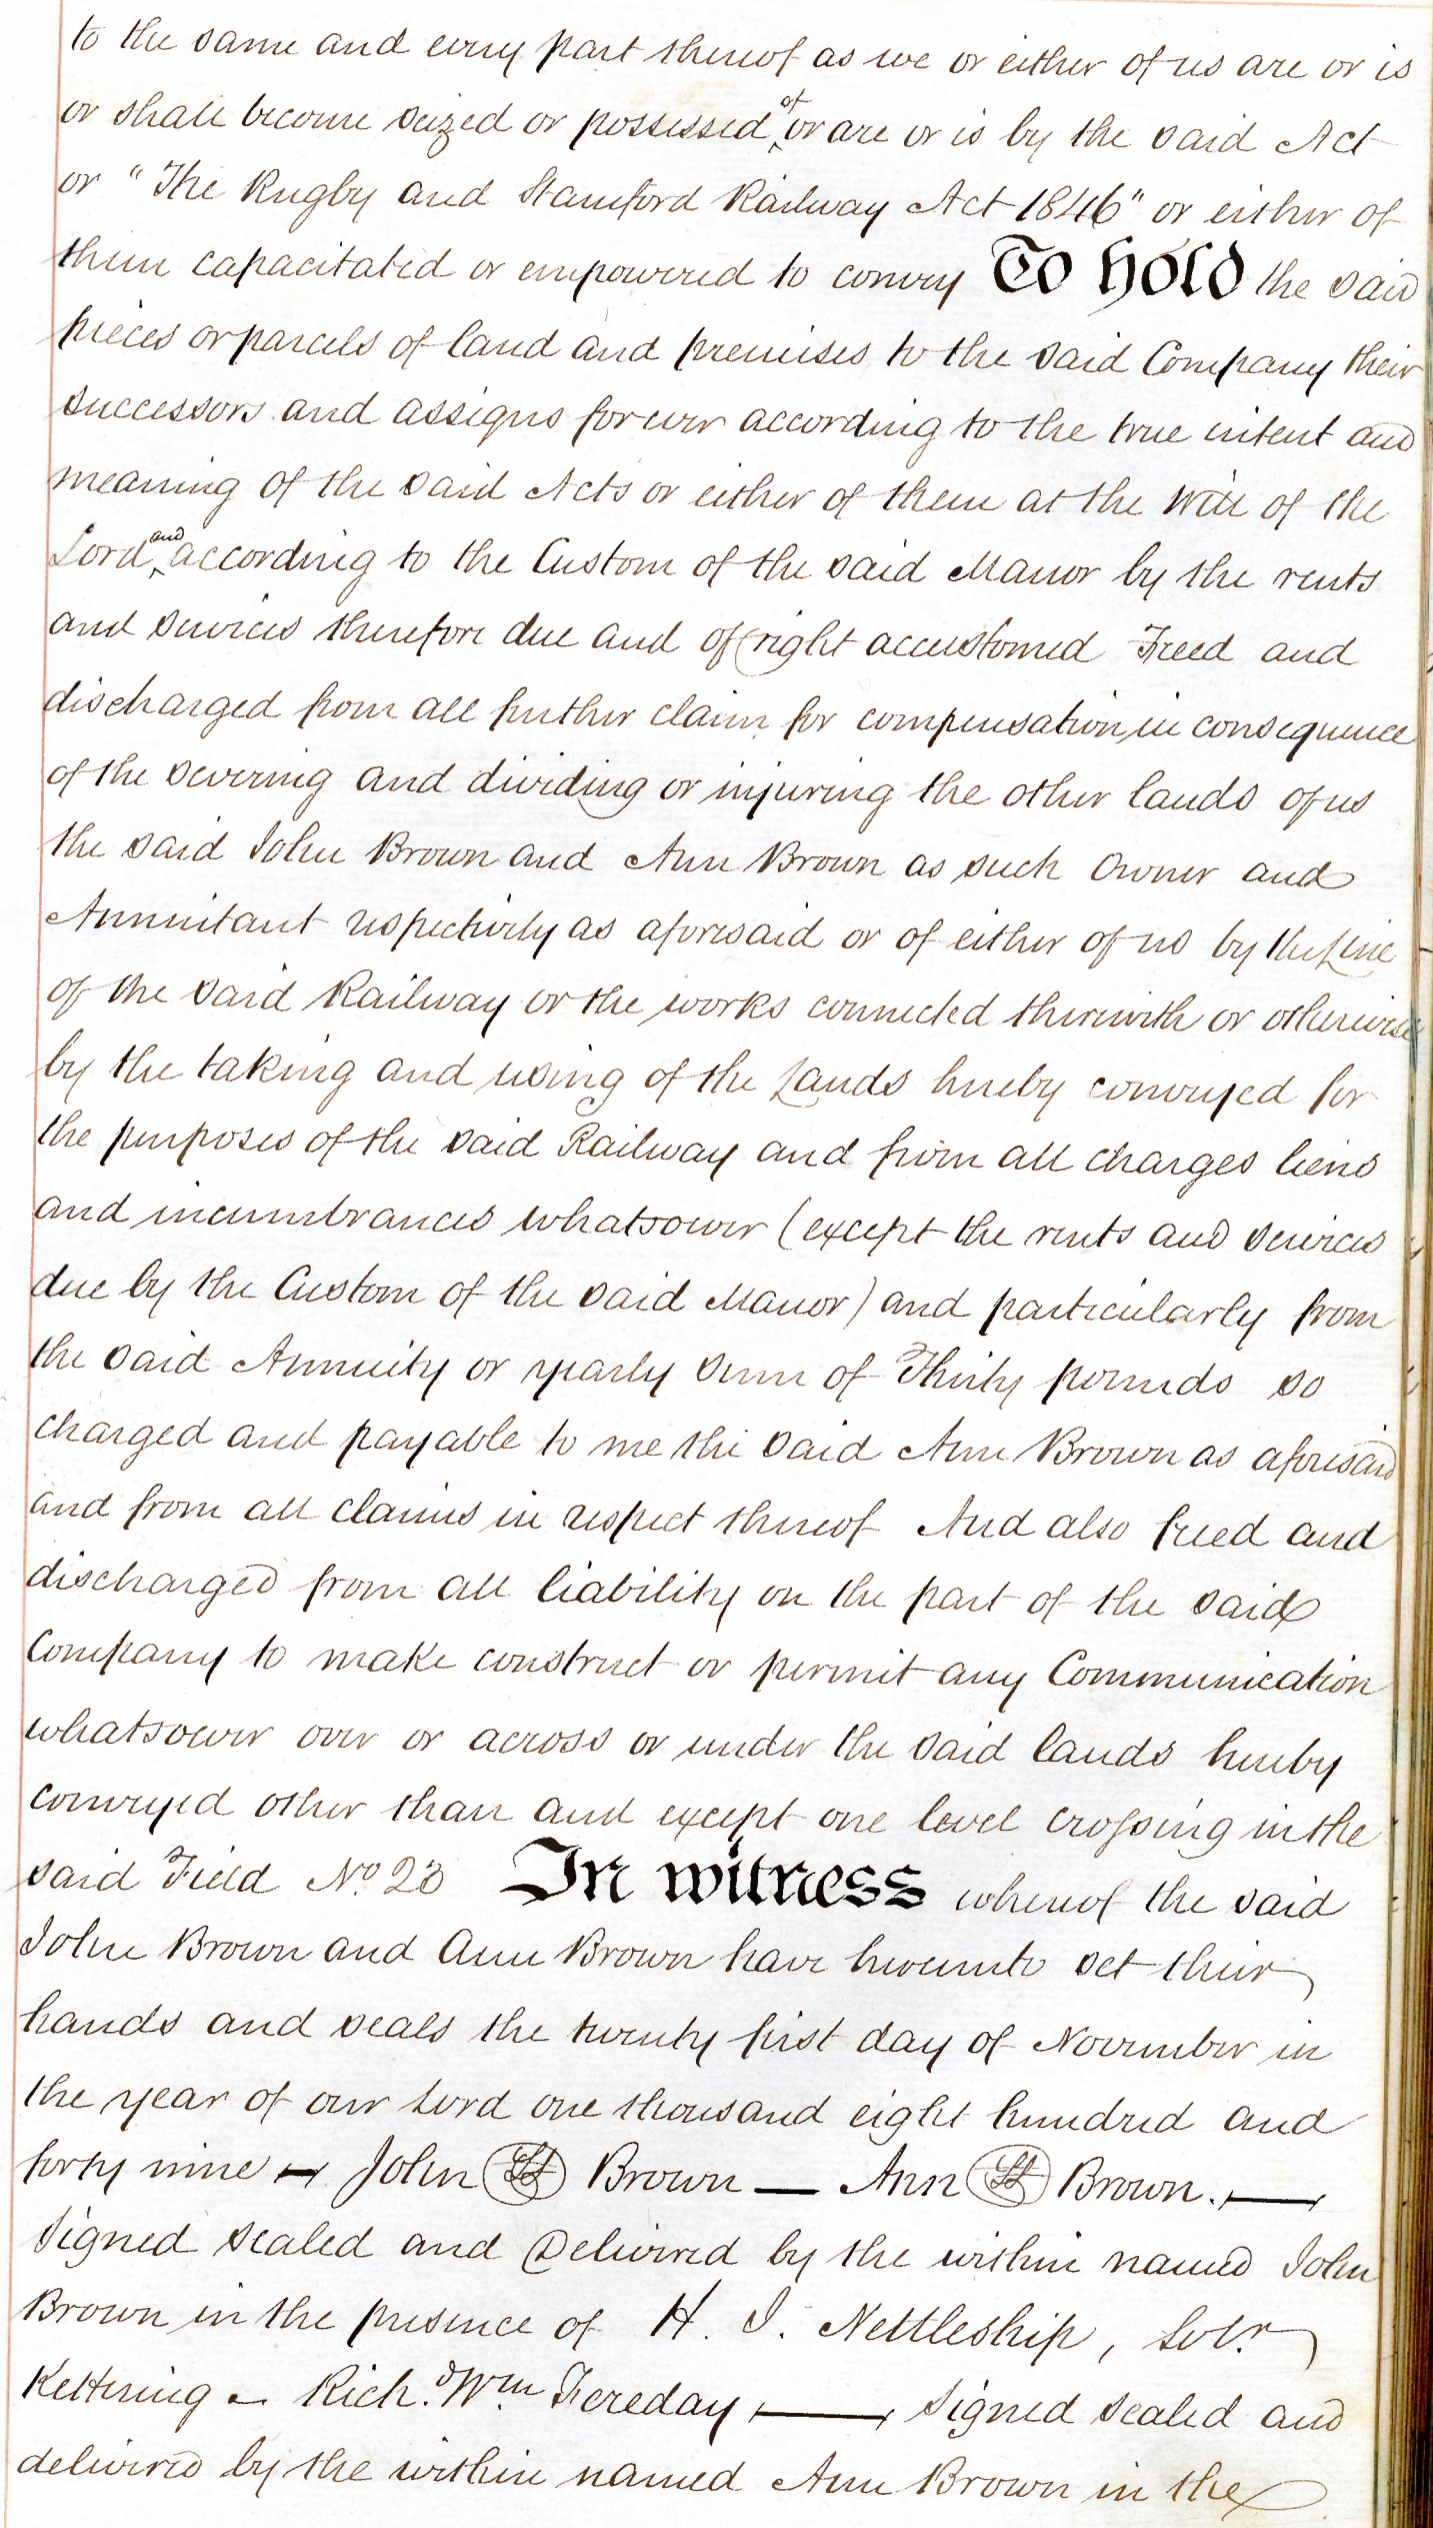 to the same and every part thereof as we or either of us are or is
or shall become seized or possessed of or are or is by the said Act
or "The Rugby and Stamford Railway Act 1846" or either of
them capacitated or empowered to convey To hold the said
pieces or parcels of land and premises to the said Company their
successors and assigns for ever according to the true intent and
meaning of the said Acts or either of them at the Will of the
Lord and according to the Custom of the said Manor by the rents
and services therefore due and of right accustomed Freed and
discharged from all further claim for compensation in consequence
of the severing and dividing or injuring the other lands of us
the said John Brown and Ann Brown as such Owner and
Annuitant respectively as aforesaid or of either of us by the Line
of the said Railway or the works connected therewith or otherwise
by the taking and using of the Lands hereby conveyed for
the purposes of the said Railway and from all charges liens
and incumbrances whatsoever (except the rents and services
due by the Custom of the said Manor) and particularly from
the said Annuity or yearly sum of Thirty pounds so
charged and payable to me the said Ann Brown as aforesaid
and from all claims in respect thereof And also freed and
discharged from all liability on the part of the said
Company to make construct or permit any Communication
whatsoever over or across or under the said lands hereby
conveyed other than and except one level crossing in the
said Field No. 23 In witness whereof the said
John Brown and Ann Brown have hereunto set their
hands and seals the twenty first day of November in
the year of our Lord one thousand eight hundred and
forty nine — John LS Brown — Ann LS Brown. —
Signed Sealed and Delivered by the within named John
Brown in the presence of H. I. Nettleship, Solr.
Kettering – Richd. Wm. Fereday — Signed Sealed and
delivered by the within named Ann Brown in the